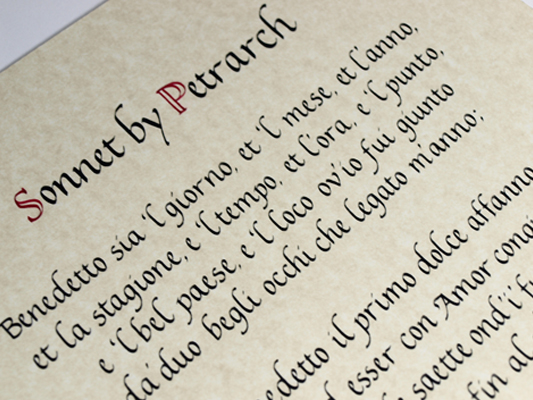 Sonnet by Petrarch
Benedetto sia 'l giorno, et 'l mese, et l'anno,
et la stagione, e 'l tempo, et l'ora, e 'l punto,
e 'l bel paese, e 'l loco ov'io fui giunto
da' duo begli occhi che legato m'ànno;
edetto il primo dolce affanno
esser con Amor
saette ond'i'
fin al